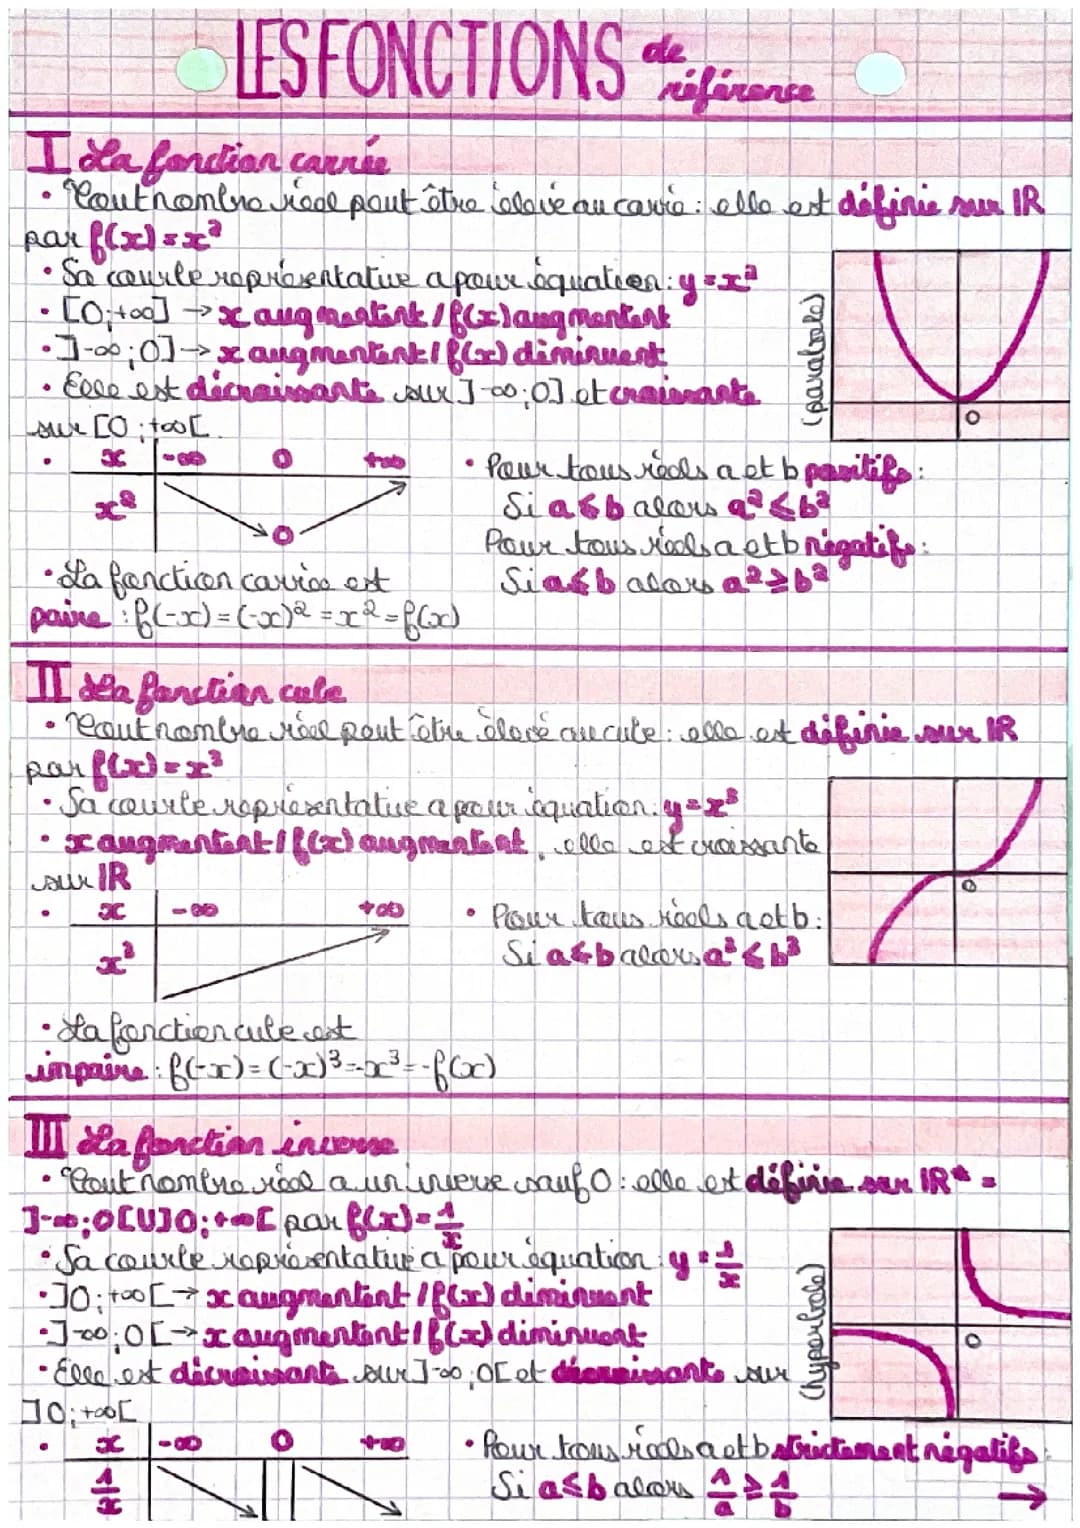 LES FONCTIONS de référence
I La fonction carrée
• Tout nombre réel peut être élevé au carré : elle est définie sur IR
par f(x) = x²
• Sa courbe représentative a pour équation : y = x²
• [0;+∞] → x augmentent / f(x) augmentent
• ]-∞;0] → x augmentent / f(x) diminuent
• Elle est décroissante sur ]-∞;0] et croissante
sur [0;+∞[.
(parabole)
0
• x -∞ 0 +∞
x² 0
• Pour tous réels a et b positifs :
Si a ≤ b alors a² ≤ b²
Pour tous réels a et b négatifs :
Si a ≤ b alors a² ≥ b²
• La fonction carrée est
paire : f(-x) = (-x)² = x² = f(x)
II La fonction cube
• Tout nombre réel peut être élevé au cube : elle est définie sur IR
par f(x) = x³
• Sa courbe représentative a pour équation : y = x³
• x augmentent / f(x) augmentent, elle est croissante
sur IR
0
• x -∞ +∞
x³
• Pour tous réels a et b :
Si a ≤ b alors a³ ≤ b³
• La fonction cube est
impaire : f(-x) = (-x)³ = -x³ = -f(x)
III La fonction inverse
• Tout nombre réel a un inverse sauf 0 : elle est définie sur IR* =
]-∞;0[U]0;+∞[ par f(x) = 1/x
• Sa courbe représentative a pour équation : y = 1/x
• ]0;+∞[ → x augmentent / f(x) diminuent
• ]-∞;0[ → x augmentent / f(x) diminuent
• Elle est décroissante sur ]-∞;0[ et décroissante sur
]0;+∞[
(hyperbole)
0
• x -∞ 0 +∞
1/x
• Pour tous réels a et b strictement négatifs :
Si a ≤ b alors 1/a ≥ 1/b →